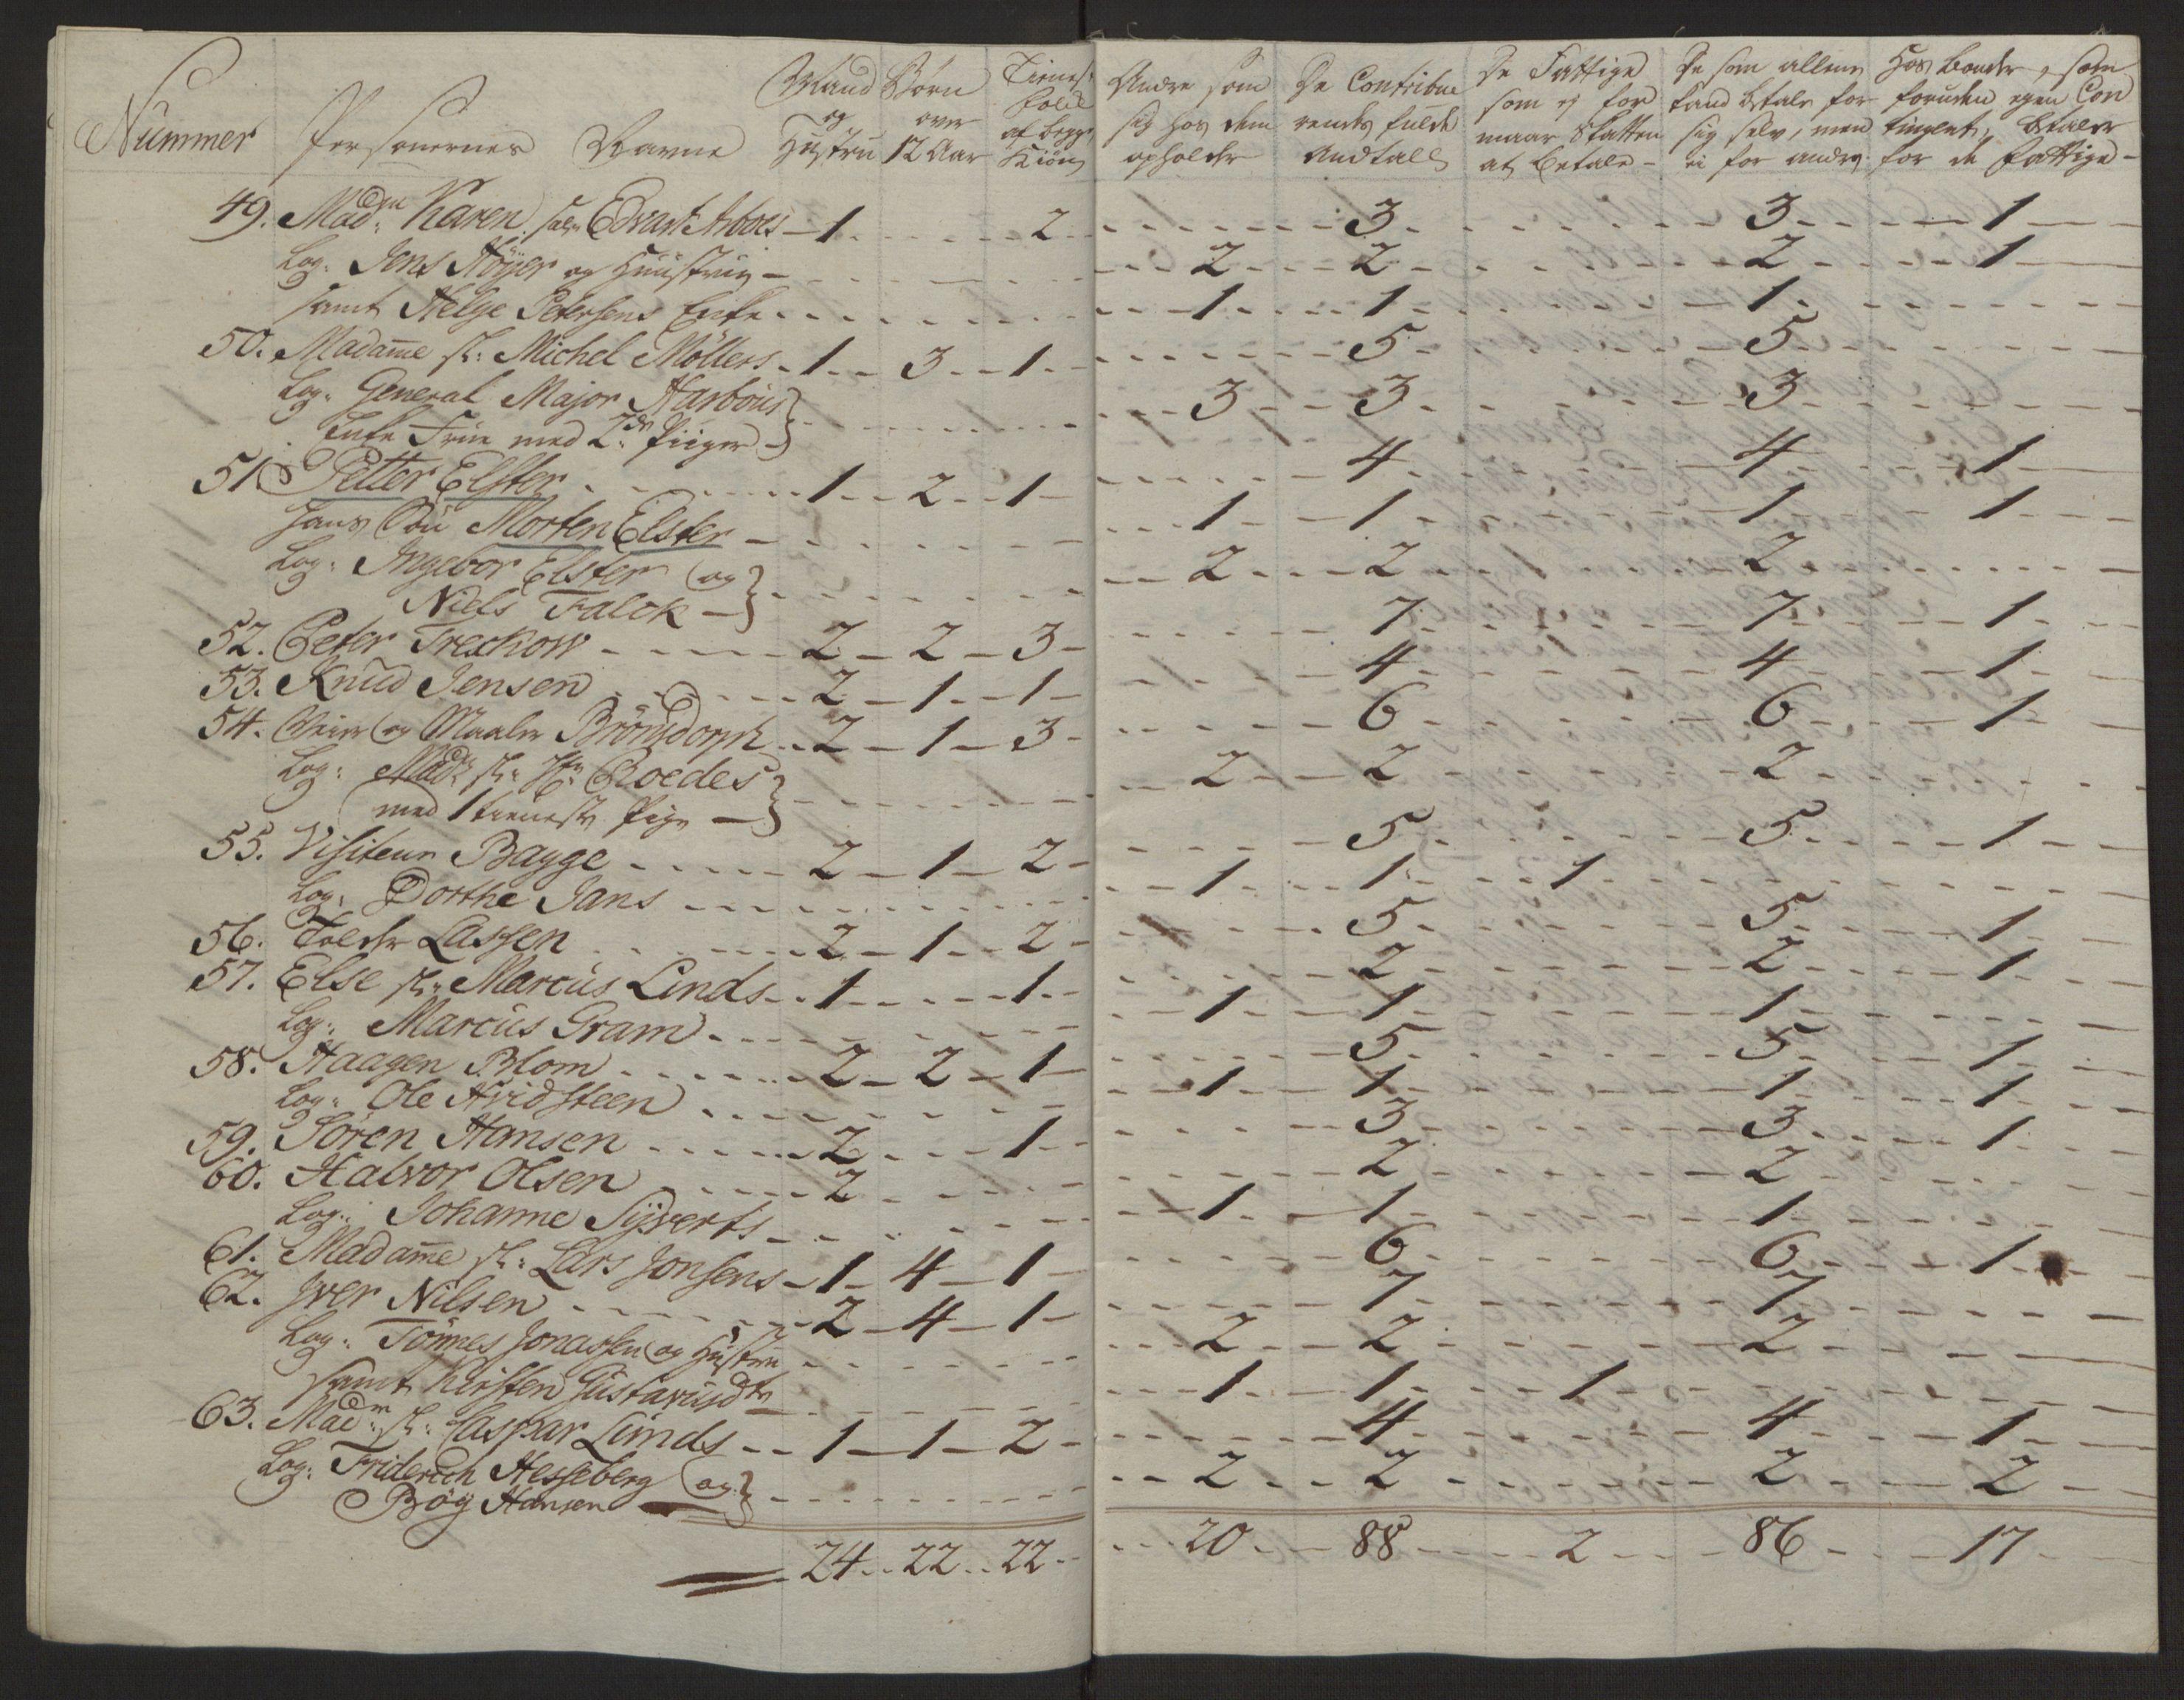 Nummer | Personernes Navne | Mand og Hustru | Børn over 12 Aar | Tieneste Folk af begge Kiøn | Andre som sig hos dem opholder | De Contribuerendes fulde Andtall | De Fattige som ej formaar Skatten at betale | De som allene kand betale for sig selv, men ei for andre | Hosbonder, som foruden egen Contingent, betaler for de fattige
49. Madm Karen sal. Edvart Arboes 1 2 3 3 1
Log: Jens Höyer og Huustrue 2 2 2 1
samt Helge Petersens Enke 1 1 1
50. Madame sl: Michel Möllers 1 3 1 5 5
Log: General Major Harbous
Enke Frue med 2de Piiger 3 3 3
51 Petter Elster 1 2 1 4 4 1
Hans Sön Morten Elster 1 1 1 1
Log: Ingebor Elster og
Niels Falck 2 2 2
52. Peter Treckow 2 2 3 7 7 1
53. Knud Jensen 2 1 1 4 4 1
54. Veier og Maaler Brönsdorph 2 1 3 6 6 1
Log: Madm sl: Hr: Roedes
med 1 tieneste Pige 2 2 2
55. Visiteur Bagge 2 1 2 5 5 1
Log: Dorthe Jans 1 1 1
56. Tolder Lassen 2 1 2 5 5 1
57. Else sl: Marcus Linds 1 1 2 2 1
Log: Marcus Gram 1 1 1
58. Haagen Blom 2 2 1 5 5 1
Log: Ole Hvidsteen 1 1 1 1
59. Sören Hansen 2 1 3 3 1
60. Halvor Olsen 2 2 2
Log: Johanne Syverts 1 1 1
61. Madame sl: Lars Jonsens 1 4 1 6 6 1
62. Iver Nilsen 2 4 1 7 7
Log: Tönnes Jonassen og Hustru 2 2 2
samt Kirsten Gustavusdtr 1 1 1
63. Madm sl: Caspar Lunds 1 1 2 4 4 1
Log: Friderich Hesseberg og
Böy Hansen 2 2 2 2
24 22 22 20 88 2 86 17